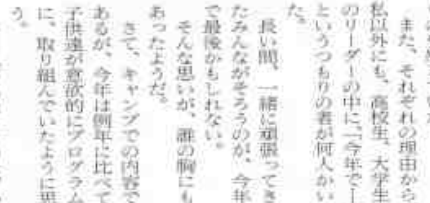 また、それぞれの理由から
私以外にも、高校生、大学生
のリーダーの中に、「今年で一
というつもりの者が何人かい
た。
長い間、一緒に頑張ってき
たみんながそろうのが、今年
で最後かもしれない。
そんな思いが、誰の胸にも
あったようだ。
さて、キャンプでの内容で
あるが、今年は例年に比べて
子供達が意欲的にプログラム
に、取り組んでいたように思
う。